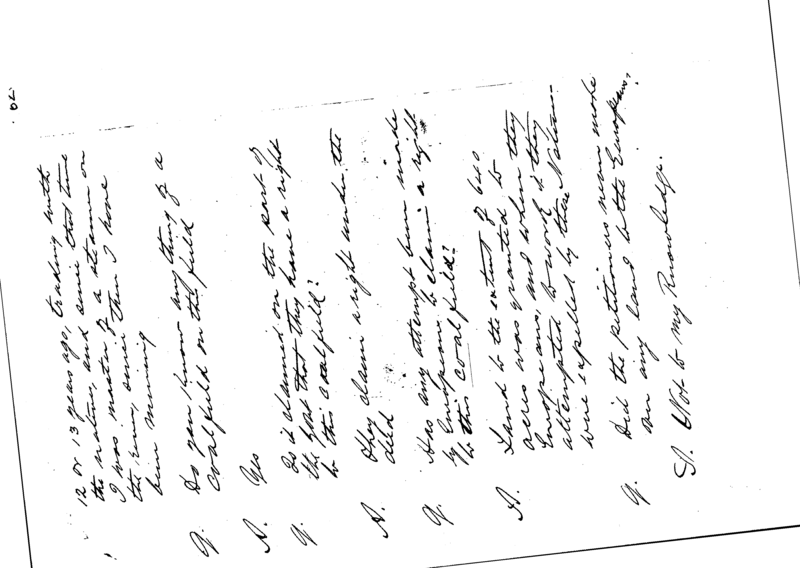 12 or 13 years ago, trading with
the natives, and since that time
I was master of a steamer on
the            , since then I have
been mining
Q. Do you know anything of a
Coalfield on this field
A. Yes
Q. Is it claimed on the part of
the            that they have a right
to this Coalfield?
A. They claim a right under the
deed
Q. Has any attempt been made
by Europeans to claim a right
to this coalfield?
A. Land to the extent of 640
acres was granted to
Europeans, and when they
attempted to work it they
were expelled by these Natives.
Q. Did the petitioners ever work
on any land with the Europeans?
A. Not to my Knowledge.